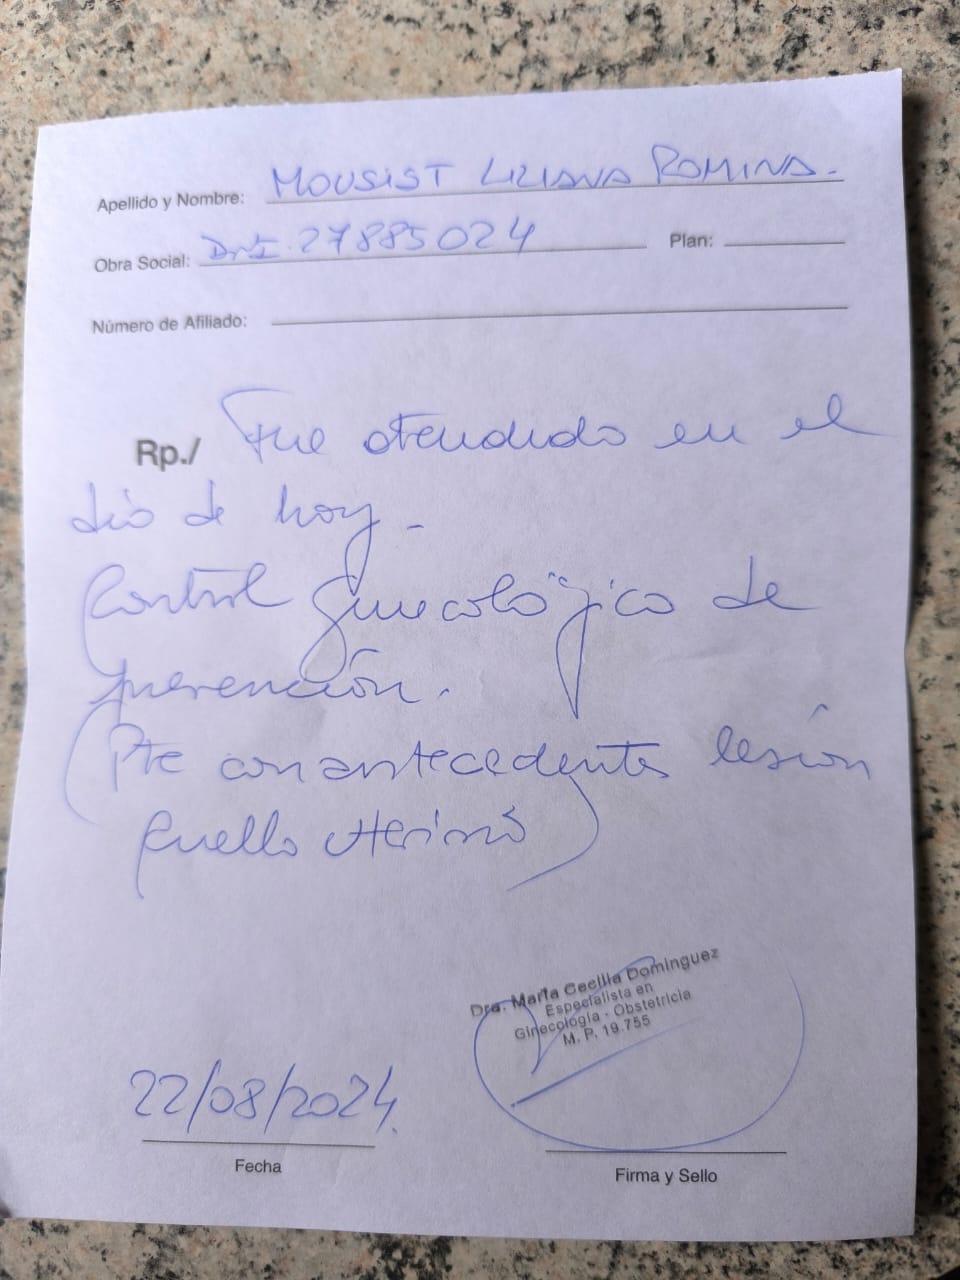 Apellido y Nombre: MOUSIST LILIANA ROMINA.
Obra Social: DNI. 27885024 Plan:
Número de Afiliado:
Rp./ Fue atendida en el
día de hoy.
Control ginecológico de
prevención.
(Pte con antecedentes lesión
Cuello uterino)
Dra. María Cecilia Dominguez
Especialista en
Ginecología - Obstetricia
M. P. 19.755
22/08/2024.
Fecha
Firma y Sello